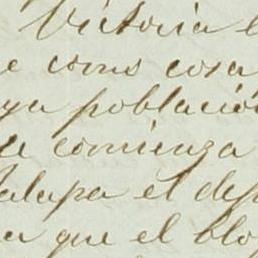 Victoria e
e como cosa
ya població
se comienza
alapa el dep
a que el blo